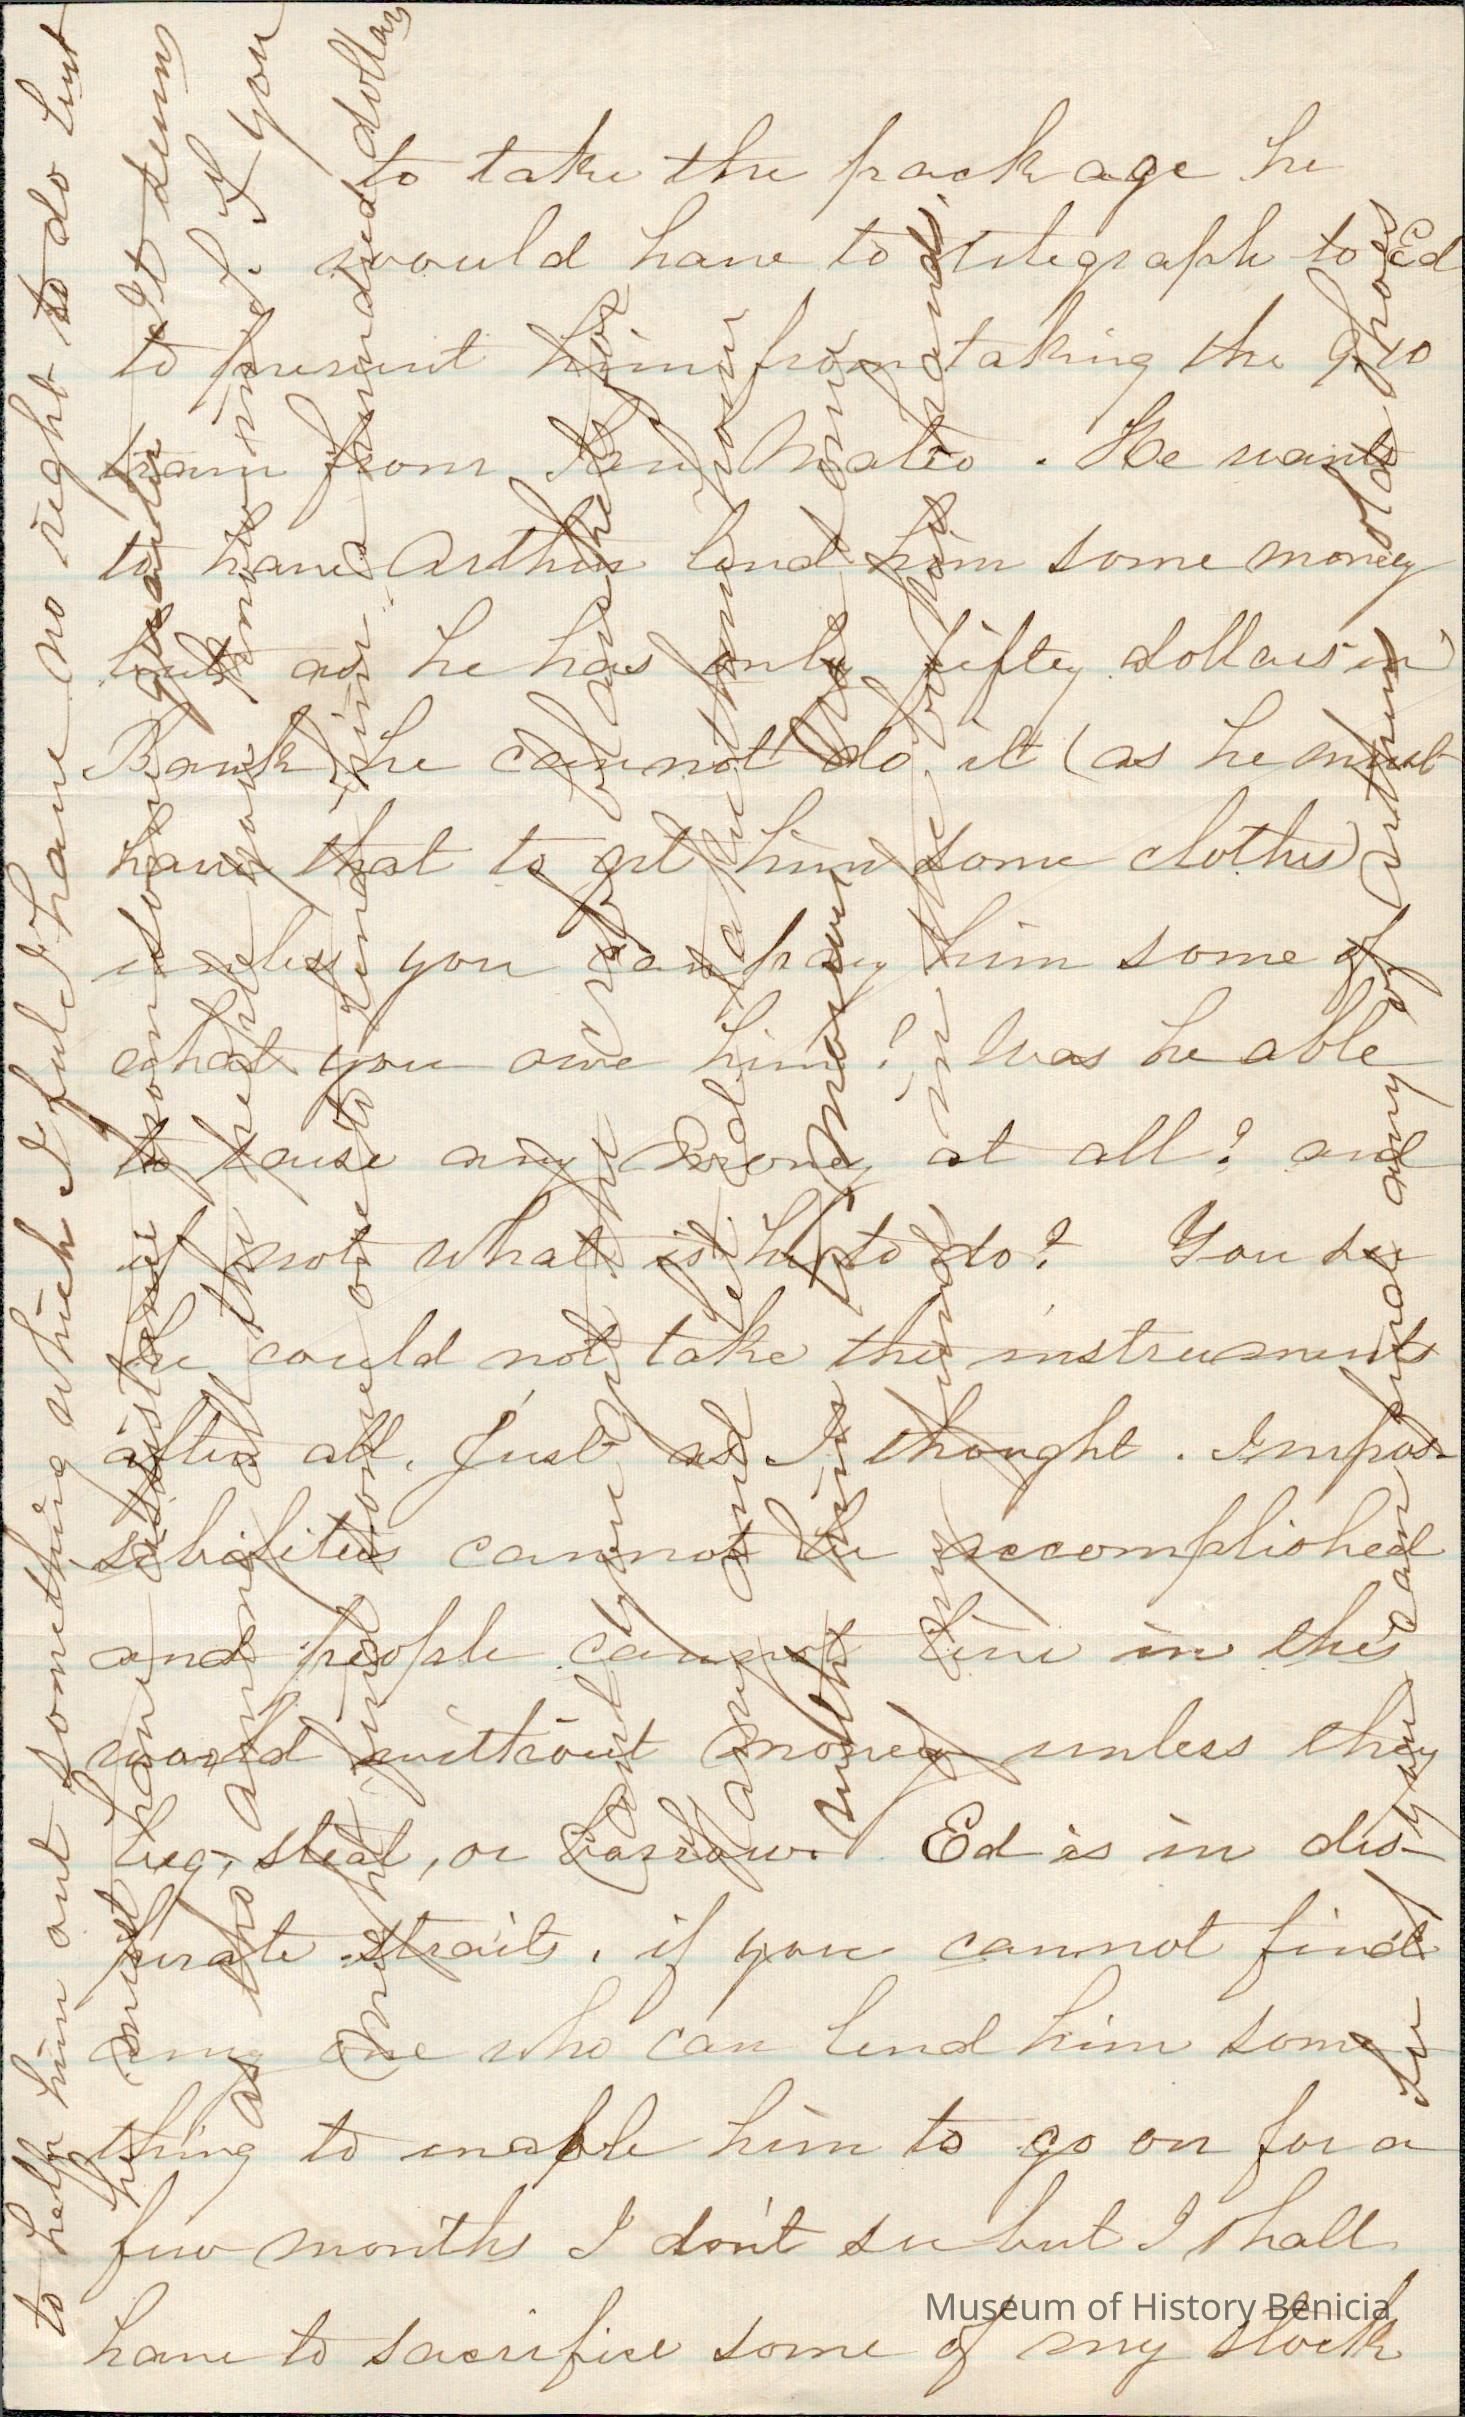 to take the package he
would have to telegraph to Ed
to prevent him from taking the 9.40
train from San Mateo. He wants
to have Arthur lend him some money
but as he has only fifty dollars in
Bank he cannot do it (as he must
have that to get him some clothes)
unless you can pay him some of
what you owe him? Was he able
to raise any money at all? and
if not what is he to do? You see
he could not take the instruments
after all, just as I thought. Impos-
sibilities cannot be accomplished
and people cannot live in this
world without money unless they
beg, steal, or borrow. Ed is in des-
perate straits, if you cannot find
any one who can lend him some-
thing to enable him to go on for a
few months I don't see but I shall
have to sacrifice some of my stock
to help him out something which I feel I have no right to do but
he must have assistance from some quarter. It seems
as tho' amongst all the people you know, if you
one or two to lend him a hundred dollars
and he and
with his
in his mind
See if you can find any of Arthur's old shoes
Museum of History Benicia